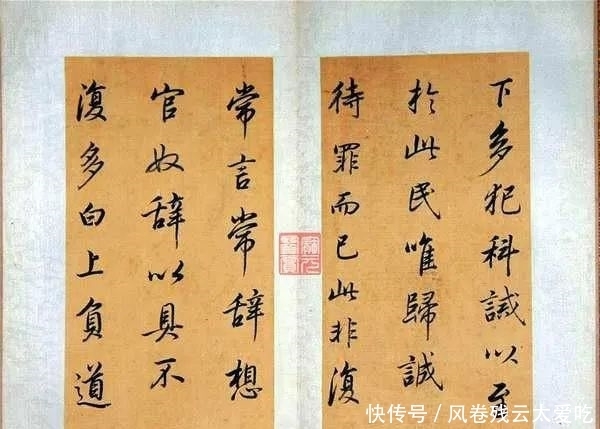 下多犯科誡以至
於此民唯歸誠
待罪而已此非復
常言常辭想
官奴辭以具不
復多白上負道
快传号/风卷残云太爱吃